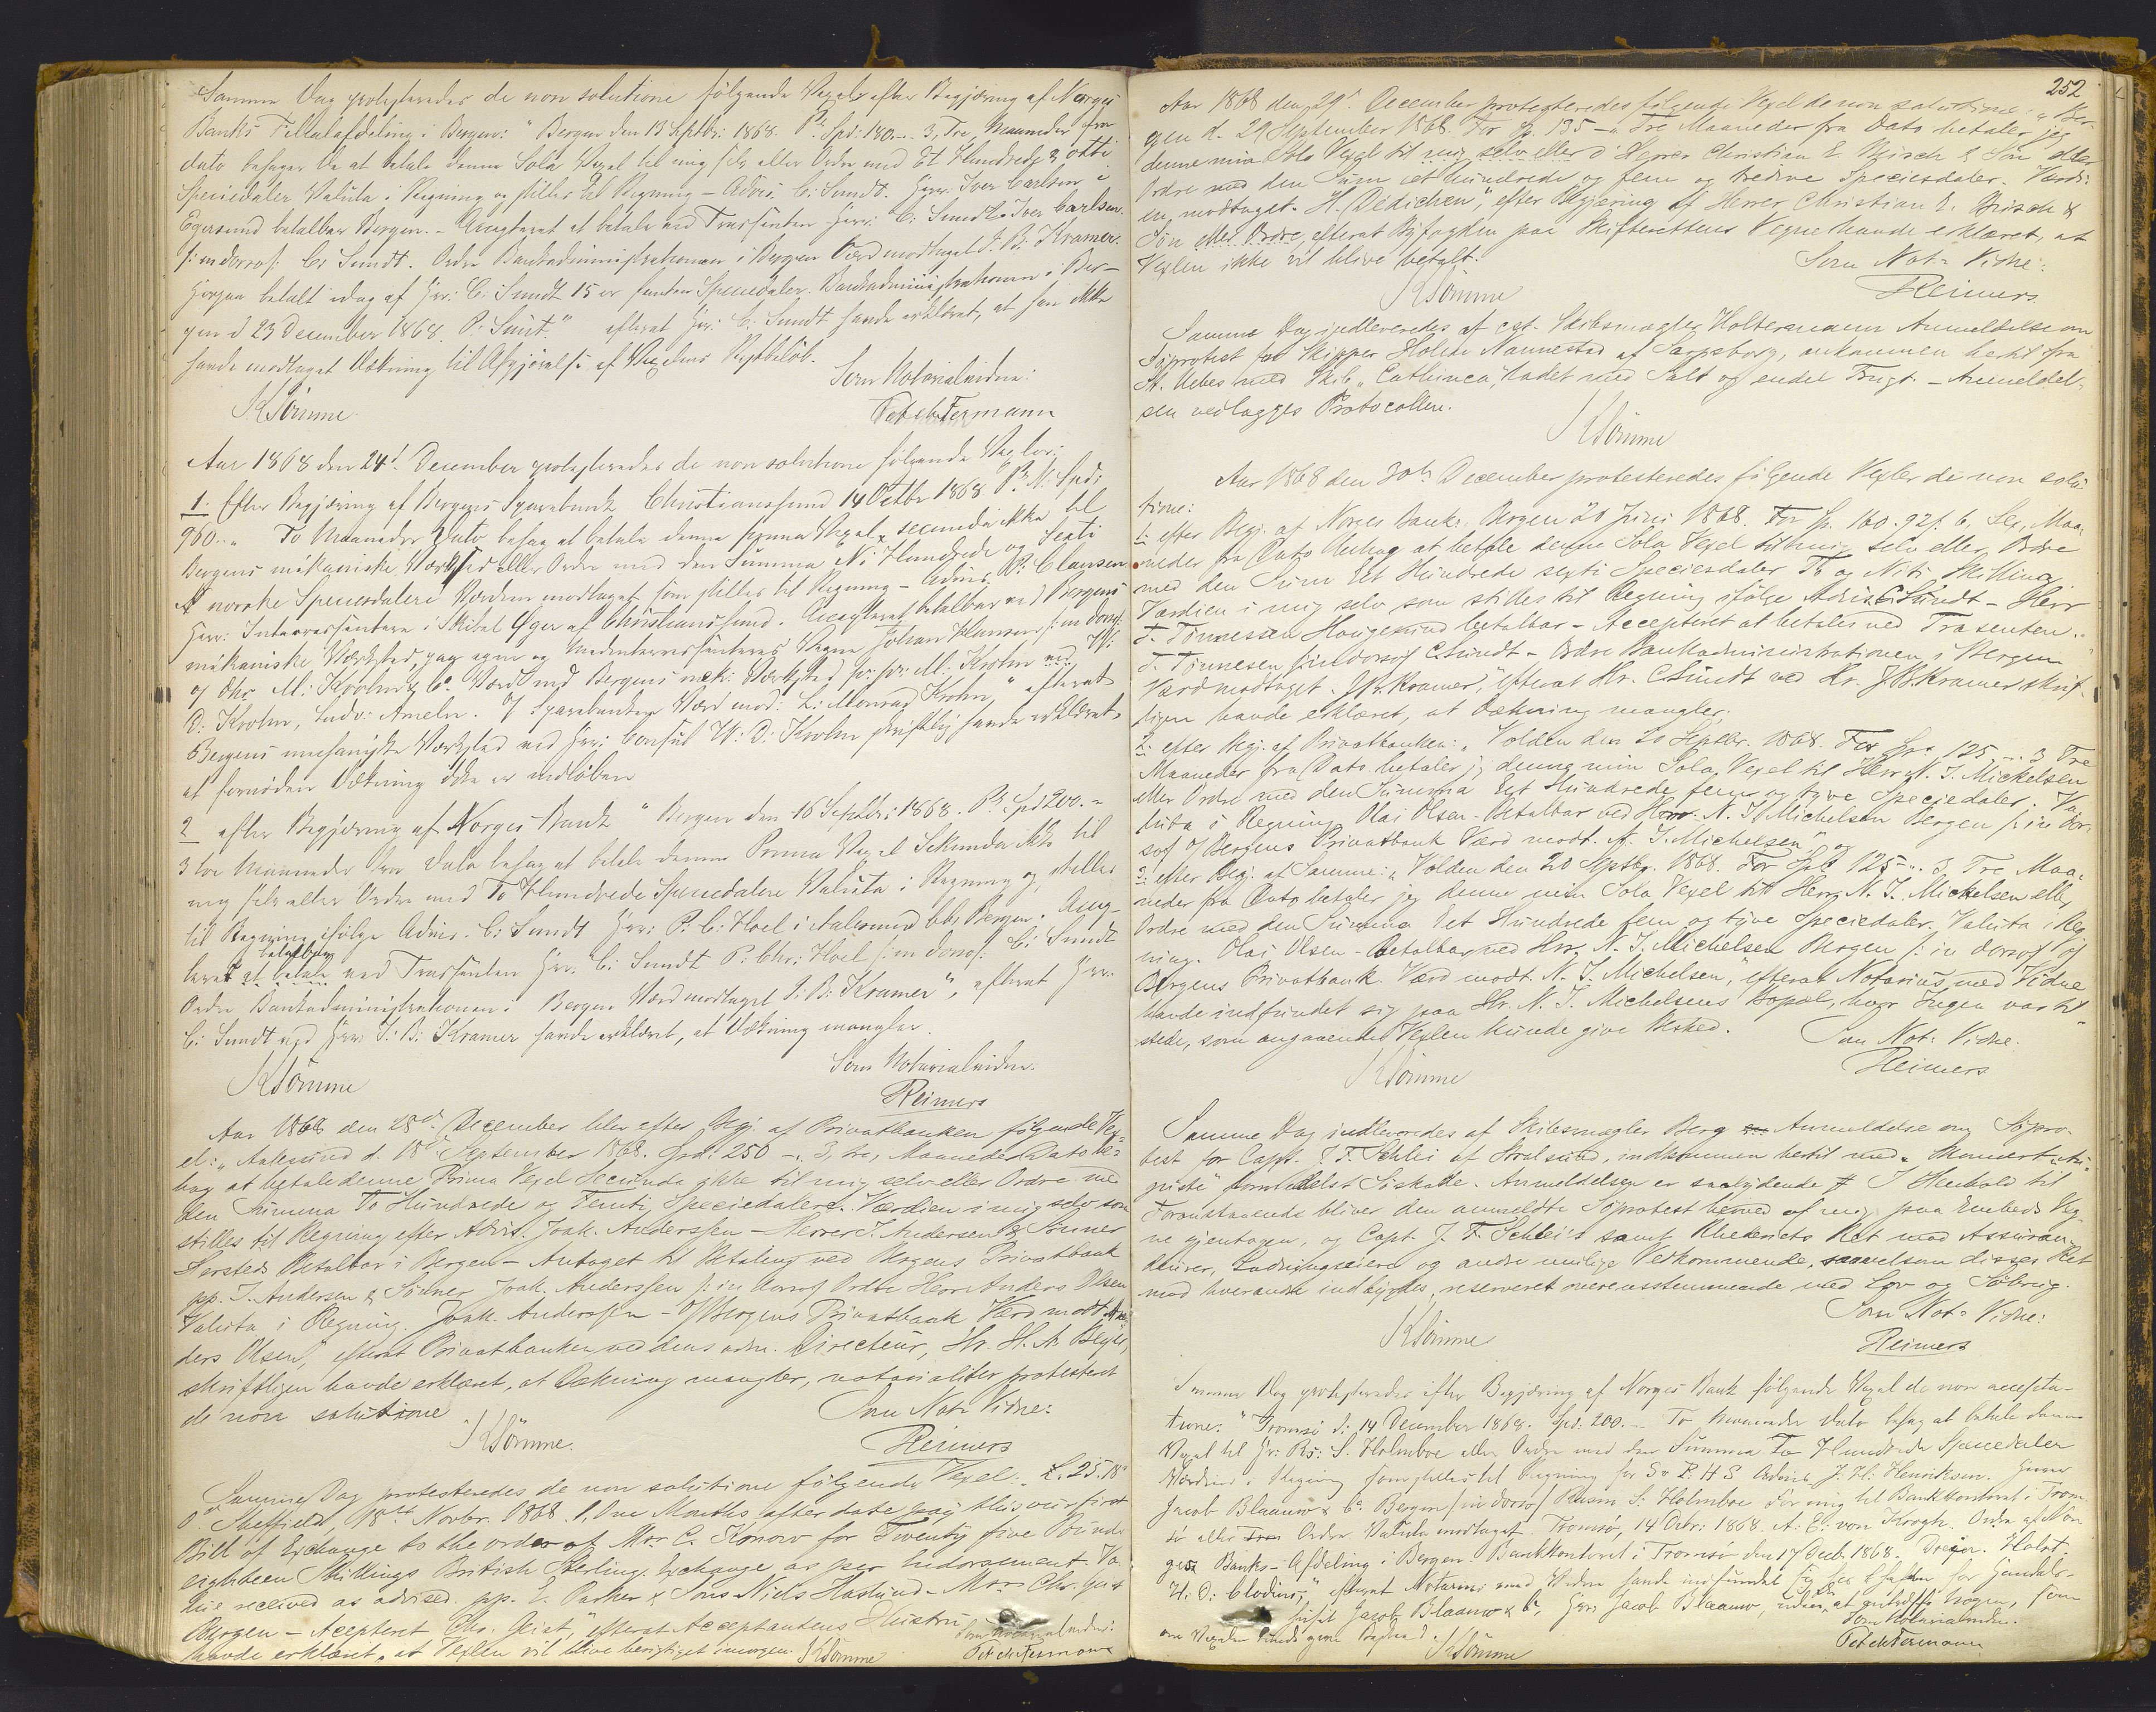 Samme Dag protesteredes de non solutione følgende Vexel efter Begjæring af Norges
Banks Filialafdeling i Bergen: "Bergen den 13 Septbr: 1868. Pr: Spd: 180... 3, Tre, Maaneder fra
dato behager De at betale denne Sola Vexel til mig selv eller Ordre med Et Hundrede & otti
Speciedaler Valuta i Regning og stilles til Regning - Advis. C: Sundt. Herr: Iver Carlsen
Egersund betalbar Bergen. - Accepteret at betale ved Trassenten Herr: C: Sundt. Iver Carlsen.
/: in dorso /: C. Sundt. Ordre Bankadministrationen i Bergen Værd modtaget J. B. Kramer.
Herpaa betalt idag af Hr: C: Sundt 15 er femten Speciedaler. Bankadministrationen i Ber-
gen d 23 December 1868. P. Sunt." efterat Hr: C: Sundt havde erklæret, at han ikke
havde modtaget Dækning til Afgjørelse af Vexelens Restbeløb.
Som Notarialvidne:
KSömme
PetchFermann
Aar 1868 den 24d. December protesteredes de non solutione følgende Vexler:
1. Efter Begjæring af Bergens Sparebank Christianssund 14 Octbr 1868 Pr. N: Spd:
960.. " To Maaneder Dato behag at betale denne prima Vexel, secunda ikke til
Bergens mekaniske Værksted eller Ordre med den Summa Ni Hundrede og Sexti
norske Speciesdalere Værdien modtaget som stilles til Regning - Advis. P: Clausen
Herr: Interessentere i Skibet Ægir af Christianssund. Accepteret betalbar ved Bergens
mekaniske Værksted, paa egne og Medinteressenteres Vegne Johan Hansen /: in dorso/:
og Chr. M: Krohn & Co. Værd med Bergens mek: Værksted pr. pr. M: Krohn
D: Krohn, Ludv: Ameln. O/ Sparebanken Værd mod: L: Monrad Krohn," efterat
Bergens mechaniske Værksted ved Herr Consul W: D: Krohn skriftlig havde erklæret,
at fornöden Dækning ikke er indlöben
2 efter Begjæring af Norges Bank "Bergen den 16 Septbr: 1868. Pr Spd 200.-
3 tre Maaneder fra Dato behag at betale denne Prima Vexel Sekunda ikke til
mig selv eller Ordre med To Hundrede Speciedalere Valuta i Regning og stilles
til Regning ifølge Advis. C: Sundt Herr: P. C: Hoel i Aalesund bb. Bergen. Accep-
betalbar
teret at betale ved Trassenten Hr. C: Sundt P. Chr: Hoel /: in dorso /: C: Sundt
Ordre Bankadministrationen i Bergen Værd modtaget J: B: Kramer", efterat Hr:
C: Sundt ved Hr: J: B: Kramer havde erklæret, at Dækning mangler.
Som Notarialvidne:
KSömme
Reimers
Aar 1868 den 28d. December blev efter Begj. af Privatbanken følgende Vex-
el: "Aalesund d. 18d September 1868. Spd: 250 -. 3, tre, Maaneder Dato be-
hag at betale denne Prima Vexel Secunda ikke til mig selv eller Ordre med
den Summa To Hundrede og Femti Speciedalere. Værdien i mig selv som
stilles til Regning efter Advis. Joak. Anderssen - Herrer J. Andersen & Sönner
Hersted Betalbar i Bergen - Antaget til Betaling ved Bergens Privatbank
pp. J. Andersen & Sönner Joak. Anderssen /: in dorso/ Ordre Herr Anders Olsen
Valuta i Regning. Joak. Anderssen - O/ Bergens Privatbank Værd modt. An-
ders Olsen," efterat Privatbanken ved dens adm. Directeur, Hr. H. A. Beyer,
skriftligen havde erklæret, at Dækning mangler, notarialiter protesteret
de non solutione
Som Not: Vidne:
KSömme.
Reimers
Samme Dag protesteredes de non solutione følgende Vexel: £. 25.18.
Sheffield, 18th Novbr. 1868. 1, One Months after date pay this our first
Bill of Exchange to the order of Mr. C. Konow for Twenty five Pounds
eighteen Shillings British Sterling. Exchange as per Indorsement. Va-
lue received as advised. pp. E. Parker & Sons Niels Haslund - Mr. Chr. Geist
Bergen - Accepteret Chr. Geist," efterat Acceptantens Hustru
havde erklæret, at Vexlen vil blive berigtiget imorgen. KSömme
Som Notarialvidne:
PetchFermann
252
Aar 1868 den 29d. December protesteredes følgende Vexel de non solutione: "Ber-
gen d. 29 September 1868. For Sp. 135 -. Tre Maaneder fra Dato betaler jeg
denne min Sola Vexel til mig selv eller O' Herrer Christian E. Brisch & Sön eller
Ordre med den Sum et hundrede og fem og tredive Speciesdaler. Værdi-
en modtaget. H. Dedichen", efter Begjæring af Herrer Christian E. Brisch &
Sön eller Ordre, efterat Byfogden paa Skifterettens Vegne havde erklæret, at
Vexlen ikke vil blive betalt.
Som Not: Vidne:
KSömme
Reimers
Samme Dag indleveredes af cst. Skibsmægler Holtermann Anmeldelse om
Söprotest for Skipper Holm Nannestad af Sarpsborg, ankommen hertil fra
St. Uebes med Skib "Cathinca", ladet med Salt og endel Frugt. - Anmeldel-
sen vedlægges Protocollen.
KSömme
Aar 1868 den 30te December protesteredes følgende Vexler de non solu-
tione:
1: efter Begj. af Norges Bank: Bergen 20 Juni 1868. For Sp. 160. 92/. 6, Sex, Maa-
neder fra Dato Behag at betale denne Sola Vexel til mig selv eller Ordre
med den Sum Eet Hundrede sexti Speciesdaler To og Niti Skilling
Værdien i mig selv som stilles til Regning ifølge Advis. C. Sundt - Herr
T. Tönnesen Haugesund betalbar - Accepteret at betales ved Trasenten..
T. Tönnesen /in dorso/ C Sundt - Ordre Bankadministrationen i Bergen
Værd modtaget. J. B. Kramer", efterat Hr. C Sundt ved Hr. J. B. Kramer skrift-
ligen havde erklæret, at Dækning mangler;
2: efter Begj. af Privatbanken: "Volden den 20 Septbr. 1868. For Spd 125 -.. 3 Tre
Maaneder fra Dato betaler jeg denne min Sola Vexel til Herr N. J. Mickelsen
eller Ordre med den Summa Eet Hundrede fem og tyve Speciedaler. Va-
luta i Regning Olai Olsen - Betalbar ved Herr. N. J. Michelsen Bergen /: in dor-
so/ O/ Bergens Privatbank Værd modt. N. J. Michelsen," og
3: efter Begj. af Samme: "Volden den 20 Septbr. 1868. For Spd 125 -.. 3 Tre Maa-
neder fra Dato betaler jeg denne min Sola Vexel till Herr N. J. Mickelsen eller
Ordre med den Summa Eet Hundrede fem og tyve Speciedaler. Valuta i Reg-
ning. Olai Olsen - Betalbar ved Hrr. N. J. Michelsen Bergen /: in dorso/ O/
Bergens Privatbank. Værd modt. N. J. Michelsen," efterat Notarius med Vidne
havde indfundet sig paa Hr. N. J. Michelsens Bopæl, hvor Ingen var til-
stede, som angaaende Vexlen kunde give Besked.
Som Not: Vidne.
KSömme
Reimers
Samme Dag indleveredes af Skibsmægler Berg Anmeldelse om Söpro-
test for Capt. J. F. Schlei af Stralsund, indkommen hertil med
formedelst Söskade. Anmeldelsen er saalydende I Henhold til
Foranstaaende bliver den anmeldte Söprotest herved af mig paa Embeds Veg-
ne gjentagen, og Capt. J. F. Schlei's samt Rhederiets Ret mod Assuran-
deurer, Ladningseiere og andre mulige Vedkommende, saavelsom disses Ret
mod hverandre indbyrdes, reserveret overensstemmende med Lov og Söbrug.
Som Not: Vidne:
KSömme
Reimers
Samme Dag protesteredes efter Begjæring af Norges Bank følgende Vexel de non accepta-
tione. "Tromsö d. 14 December 1868. Spd: 200.- To Maaneder Dato behag at betale denne
Vexel til Hr: Rs: S. Holmboe eller Ordre med den Summa To Hundrede Speciedaler
Værdien i Regning som stilles til Regning for Advis J. H: Henriksen. Herrer
Jacob Blaauw & Co Bergen /in dorso/ Rasm S: Holmboe for mig til Bankkontoret i Trom-
sö eller Ordre. Valuta modtaget. Tromsö, 14 Decbr: 1868. A: E: von Krogh. Ordre af Nor-
ges Banks-Afdeling i Bergen. Bankkontoret i Tromsö den 17 Decb. 1868. Dreyer. Holst.
H. O: Clodius," efterat Notarius med Vidne havde indfundet sig hos Chefen for Handels-
huset Jacob Blaauw & Co, Herr Jacob Blaauw, uden at antræffe nogen, som
om Vexelen kunde give Besked.
Som Notarialvidne.
KSömme
PetchFermann